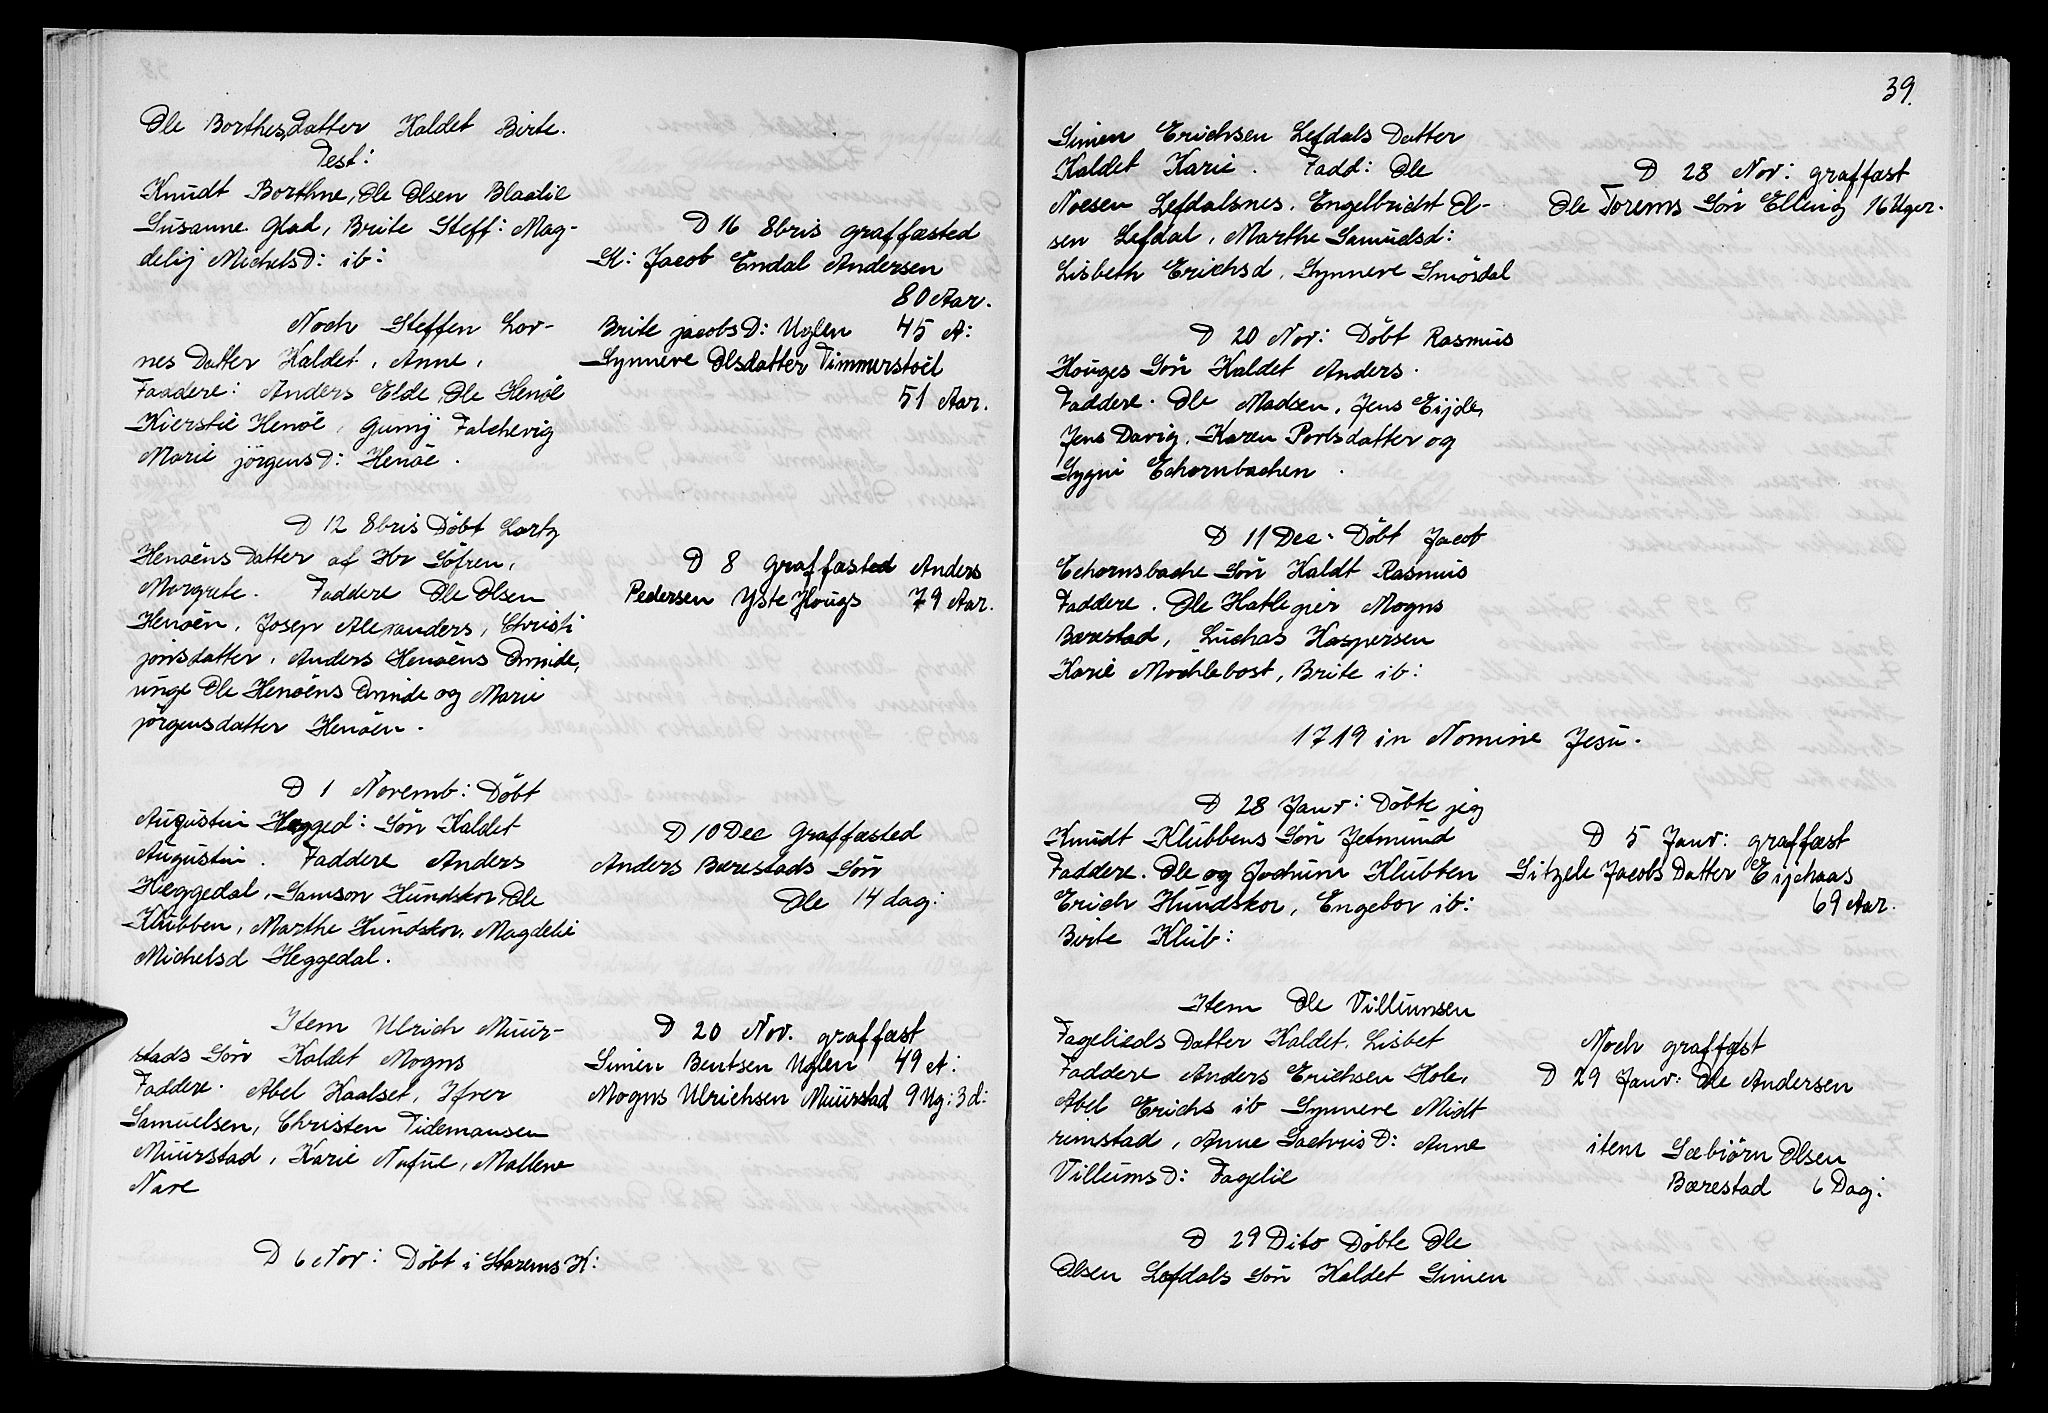 Ole Borthes Datter Kaldet Birte.
Test:
Knudt Borthne, Ole Olsen Blaalie
Susanne Glad, Brite Steff: Mag-
delij MichelsD: ib:
Noch Steffen Lor-
nes Datter Kaldet, Anne,
Faddere: Anders Elde, Ole Henöe
Kierstie Henöe, Gunij Falchevig
Marie jörgensD: Henöe.
D 12 8bris Döbt Lartz
Henöens Datter af Hr Söfren,
Margrete. Faddere Ole Olsen
Henöen, Josep Alexanders, Christi
jonsdatter, Anders Henöens Qvinde,
unge Ole Henöens Qvinde og Marie
jörgensdatter Henöen.
D 1 Novemb: Döbt
Augustin Hegged: Sön Kaldet
Augustin. Faddere Anders
Heggedal, Samson Hundskor, Ole
Klubben, Marthe Hundskor, Magdelie
Michelsd Heggedal.
Item Ulrich Muur-
stads Sön Kaldet Mogns
Faddere. Abel Kaalset, Ifver
Samuelsen, Christen Tidemansen
Muurstad, Karie Naful, Mallene
Nave
D 6 Nov: Döbt i Starems K:
D 16 8bris graffæsted
Sl: Jacob Endal Andersen
80 Aar.
Brite jacobsD: Uglen 45 A:
Synneve Olsdatter Timmerstöel
51 Aar.
D 8 graffæsted Anders
Pedersen Yste Hougs 79 Aar.
D 10 Dec Graffæsted
Anders Bærestads Sön
Ole 14 dag:
D 20 Nov. graffæst
Simen Bentsen Uglen 49 A:
Mogns Ulrichsen Muurstad 9 Ug: 3 d:
39.
Simen Erichsen Lefdals Datter
Kaldet Karie. Fadd: Ole
Noesen Lefdalsnes, Engelbricht Ol-
sen Lefdal, Marthe Samuelsd:
Lisbeth Erichsd, Synneve Smösdal
D 20 Nov: Döbt Rasmus
Houges Sön Kaldet Anders.
Faddere. Ole Madsen, Jens Eijde,
Jens Davig, Karen Portsdatter og
Sygni Echornbachen.
D 11 Dec. Döbt Jacob
Echornsbache Sön Kaldt Rasmus
Faddere. Ole Hatlegier Mogns
Bærestad, Luchas Kaspersen
Karie Mochlebost, Brite ib:
1719 in Nomine Jesu.
D 28 Janv: Döbte jeg
Knudt Klubbens Sön Jetmund
Faddere. Ole og Jochum Klubben
Erich Hundskor, Engebor ib:
Birte Klub:
Item Ole Villumsen
Fagelieds Datter Kaldet, Lisbet
Faddere Anders Erichsen Hole,
Abel Erichs ib Synneve Midt
rimstad, Anne SachrisD: Anne
VillumsD: Fagelie
D 29 Dito Döbte Ole
Olsen Lefdals Sön Kaldet Simen
D 28 Nov: graffæst
Ole Torems Sön Elling 16 Uger.
D 5 Janv: graffæst
Sitzele Jacobs Datter Eijchaas
69 Aar.
Noch graffæst
D 29 Janv: Ole Andersen
item Sæbiörn Olsen
Bærestad 6 Dag: